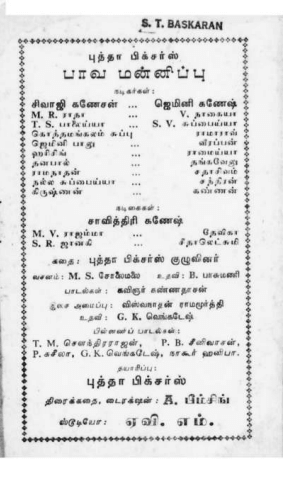 S. T. BASKARAN
புத்தா பிக்சர்ஸ்
பாவ மன்னிப்பு
நடிகர்கள் :
சிவாஜி கணேசன் ... ஜெமினி கணேஷ்
M. R. ராதா ... V. நாகையா
T. S. பாலைய்யா ... S. V. சுப்பைய்யா
கொத்தமங்கலம் சுப்பு ... ராமாராவ்
ஜெமினி பாலு ... வீரப்பன்
ஹரிசிங் ... ராமைய்யா
தனபால் ... தங்கவேலு
ராமநாதன் ... சதாசிவம்
நல்ல சுப்பைய்யா ... சந்திரன்
கிருஷ்ணன் ... கண்ணன்
நடிகைகள் :
சாவித்திரி கணேஷ்
M. V. ராஜம்மா ... தேவிகா
S. R. ஜானகி ... சீதாலெட்சுமி
கதை : புத்தா பிக்சர்ஸ் குழுவினர்
வசனம் : M. S. சோலைமலை உதவி : B. பாசுமணி
பாடல்கள் : கவிஞர் கண்ணதாசன்
இசை அமைப்பு : விஸ்வநாதன் ராமமூர்த்தி
உதவி : G. K. வெங்கடேஷ்
பின்னணிப் பாடல்கள் :
T. M. சௌந்திரராஜன், P. B. சீனிவாசன்,
P. சுசீலா, G. K. வெங்கடேஷ், நாகூர் ஹனிபா.
தயாரிப்பு :
புத்தா பிக்சர்ஸ்
திரைக்கதை, டைரக்ஷன் : A. பீம்சிங்
ஸ்டூடியோ : ஏவி. எம்.